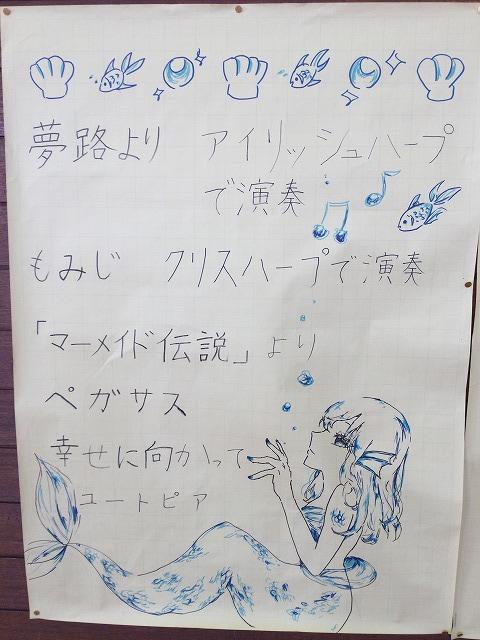 夢路より アイリッシュハープ
で演奏
もみじ クリスハープで演奏
「マーメイド伝説」より
ペガサス
幸せに向かって
ユートピア